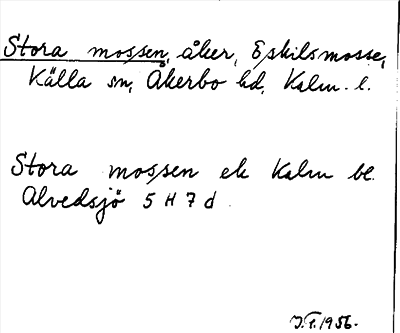 Stora mossen, åker, Eskilsmosse,
Källa sn, Åkerbo hd, Kalm. l.
Stora mossen ek Kalm bl.
Alvedsjö 5 H 7 d
J.F. 1956.